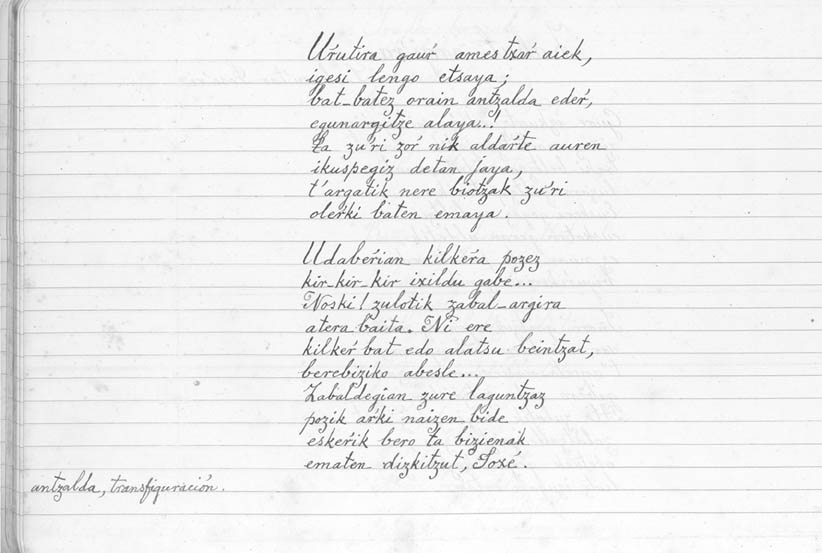 Uŕutira gauŕ ames txaŕ aiek,
igesi lengo etsaya;
bat-batez orain antzalda edeŕ,
egunargitze alaya..!
Ta zu'ri zoŕ nik aldaŕte auren
ikuspegiz detan jaya,
t'argatik nere biotzak zu'ri
oleŕki baten emaya.
Udabeŕian kilkeŕa pozez
kir-kir-kir ixildu gabe...
Noski! zulotik zabal-argira
atera baita. Ni ere
kilkeŕ bat edo alatsu beintzat,
berebiziko abesle...
Zabaldegian zure laguntzaz
pozik aŕki naizen bide
eskeŕik bero ta bizienak
ematen dizkitzut, Joxé.
antzalda, transfiguración.